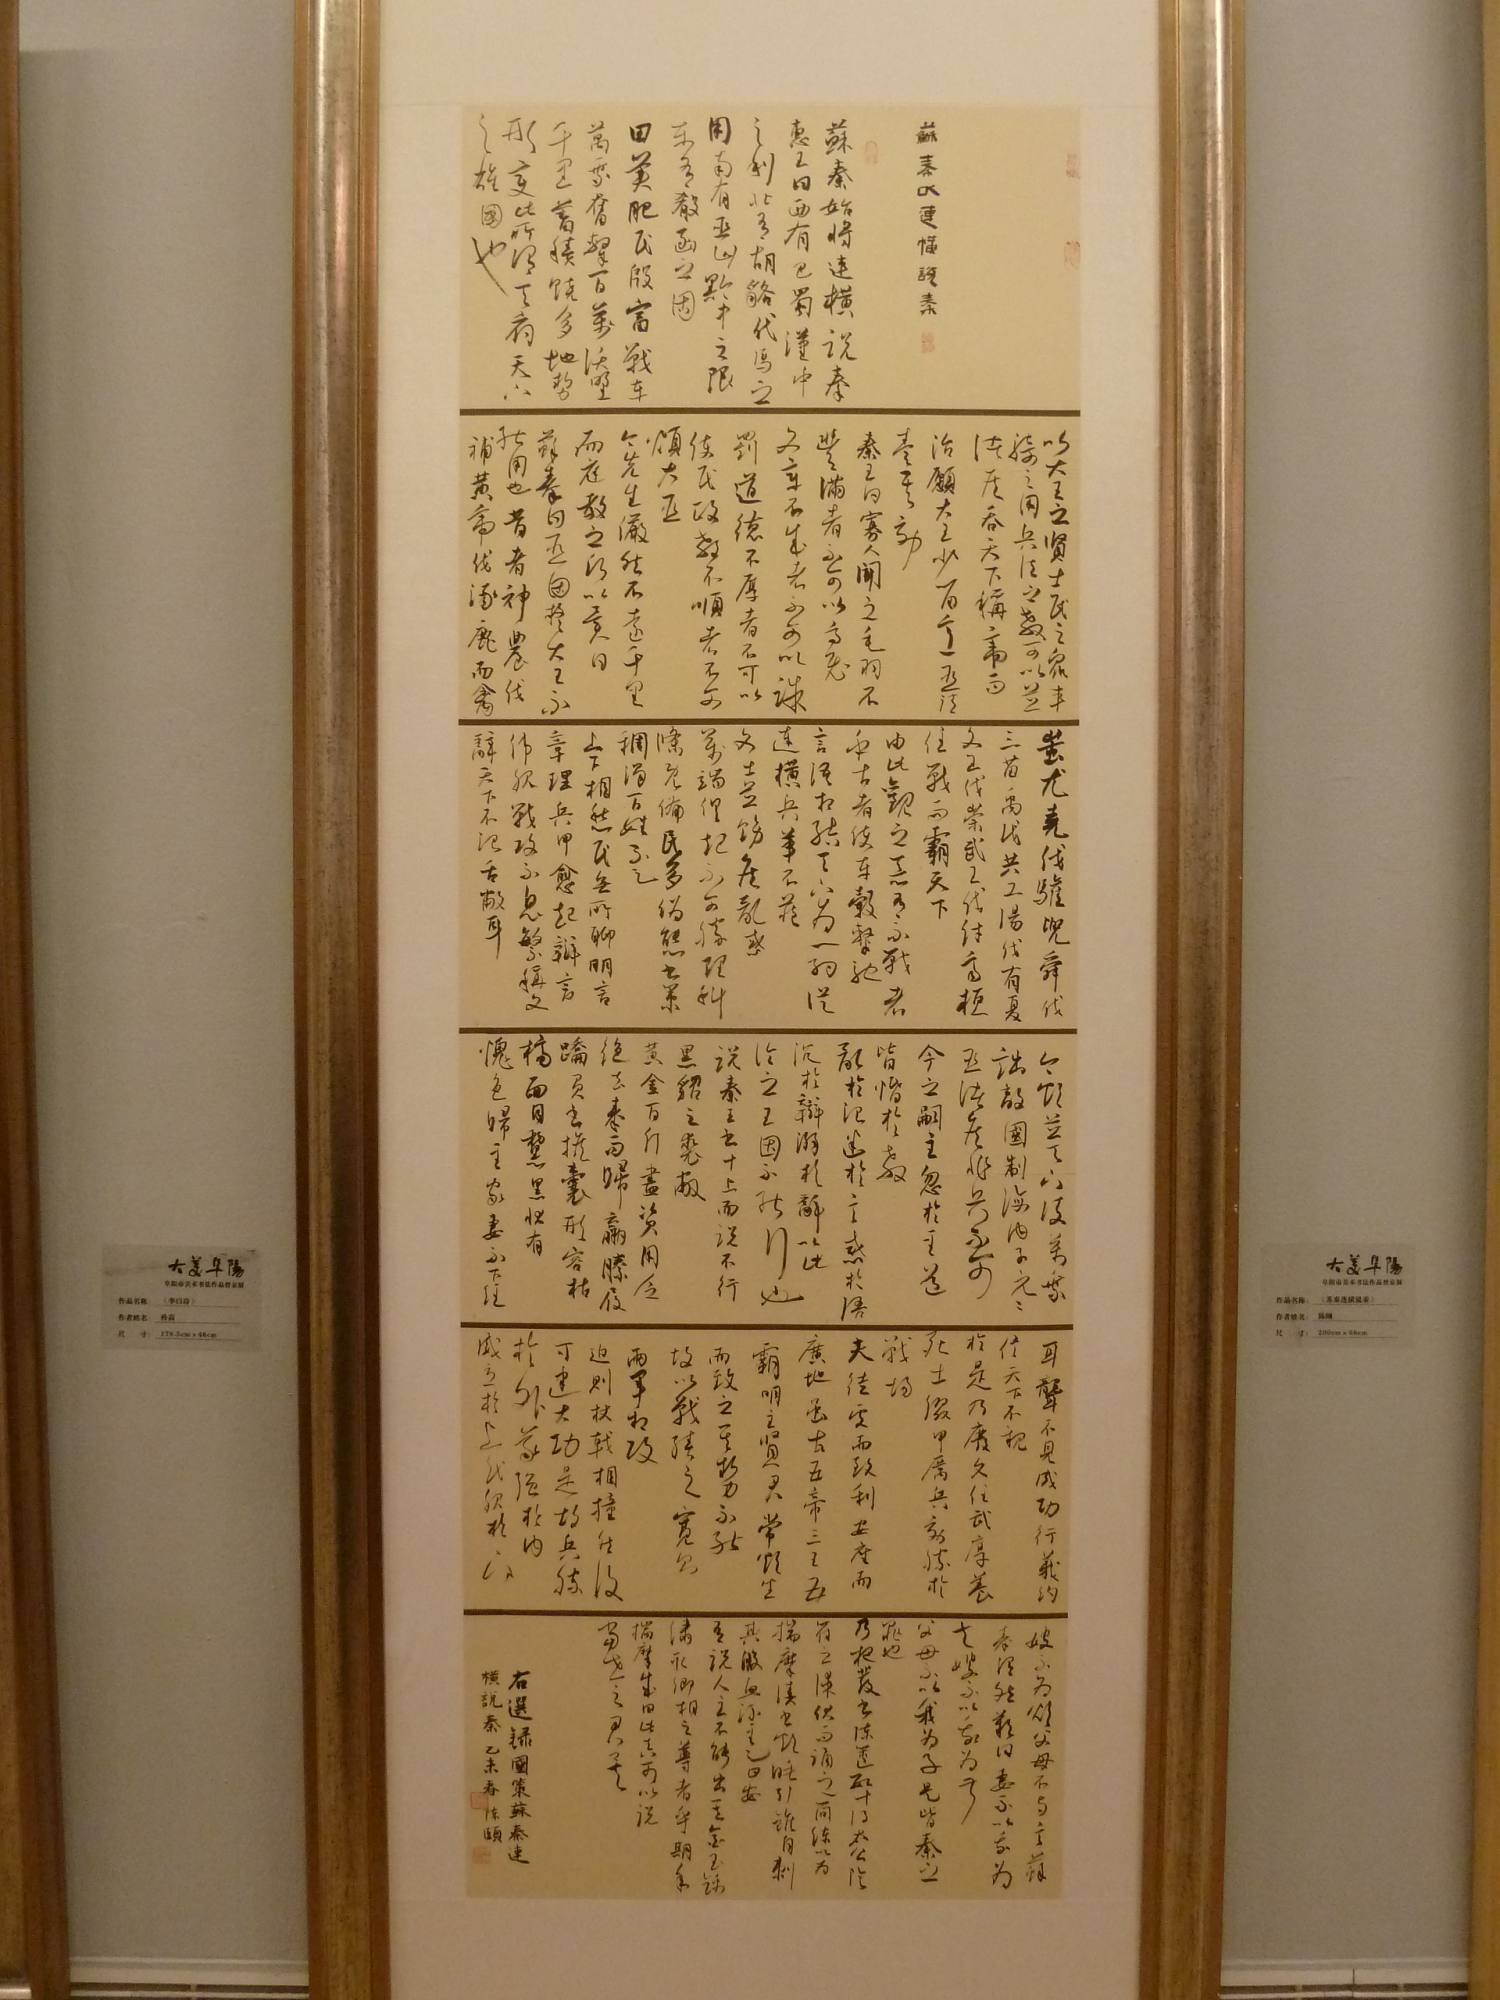 蘇秦以連橫說秦
蘇秦始將連橫說秦
惠王曰西有巴蜀漢中
之利北有胡貉代馬之
用南有巫山黔中之限
東有殽函之固
田美肥民殷富戰車
萬乘奮擊百萬沃野
千里蓄積饒多地勢
形變此所謂天府天下
之雄國也
以大王之賢士民之眾車
騎之用兵法之教可以並
諸侯吞天下稱帝而
治願大王少留意臣請
奏其効
秦王曰寡人聞之毛羽不
豐滿者不可以高飛
文章不成者不可以誅
罰道德不厚者不可以
使民政教不順者不可
煩大臣
今先生儼然不遠千里
而庭教之願以異日
蘇秦曰臣固疑大王不
能用也昔者神農伐
補黃帝伐涿鹿而禽
蚩尤堯伐驩兜舜伐
三苗禹伐共工湯伐有夏
文王伐崇武王伐紂齊桓
任戰而霸天下
由此觀之惡有不戰者
乎古者使車轂擊馳
言語相結天下為一約從
連橫兵革不藏
文士並飭諸侯亂惑
萬端俱起不可勝理科
條既備民多偽態書策
稠濁百姓不足
上下相愁民無所聊明言
章理兵甲愈起辯言
偉服戰攻不息繁稱文
辭天下不治舌敝耳
今欲並天下凌萬乘
詘敵國制海內子元元
臣諸侯非兵不可
今之嗣主忽於至道
皆惛於教
亂於治迷於言惑於語
沉於辯溺於辭以此
論之王固不能行也
說秦王書十上而說不行
黑貂之裘敝
黃金百斤盡資用乏
絕去秦而歸羸縢履
蹻負書擔囊形容枯
槁面目犂黑狀有
愧色歸至家妻不下絍
耳聾不見成功行義約
信天下不親
於是乃廢文任武厚養
死士綴甲厲兵効勝於
戰場
夫徒處而致利安坐而
廣地雖古五帝三王五
霸明主賢君常欲坐
而致之其勢不能
故以戰續之寬則
兩軍相攻
迫則杖戟相撞然後
可建大功是故兵勝
於外義強於內
威立於上民服於下
嫂不為炊父母不與言蘇
秦喟然歎曰妻不以我為
夫嫂不以我為叔
父母不以我為子是皆秦之
罪也
乃夜發書陳篋數十得太公陰
符之謀伏而誦之簡練以為
揣摩讀書欲睡引錐自刺
其股血流至足曰安
有說人主不能出其金玉錦
繡取卿相之尊者乎期年
揣摩成曰此真可以說
當世之君矣
右選錄國策蘇秦連
橫說秦乙未春陳頤
大美阜陽
阜阳市美术书法作品晋京展
作品名称：《李白诗》
作者姓名：
尺 寸：178.5cm x 46cm
大美阜陽
阜阳市美术书法作品晋京展
作品名称：《苏秦连横说秦》
作者姓名：陈颐
尺 寸：200cm x 66cm